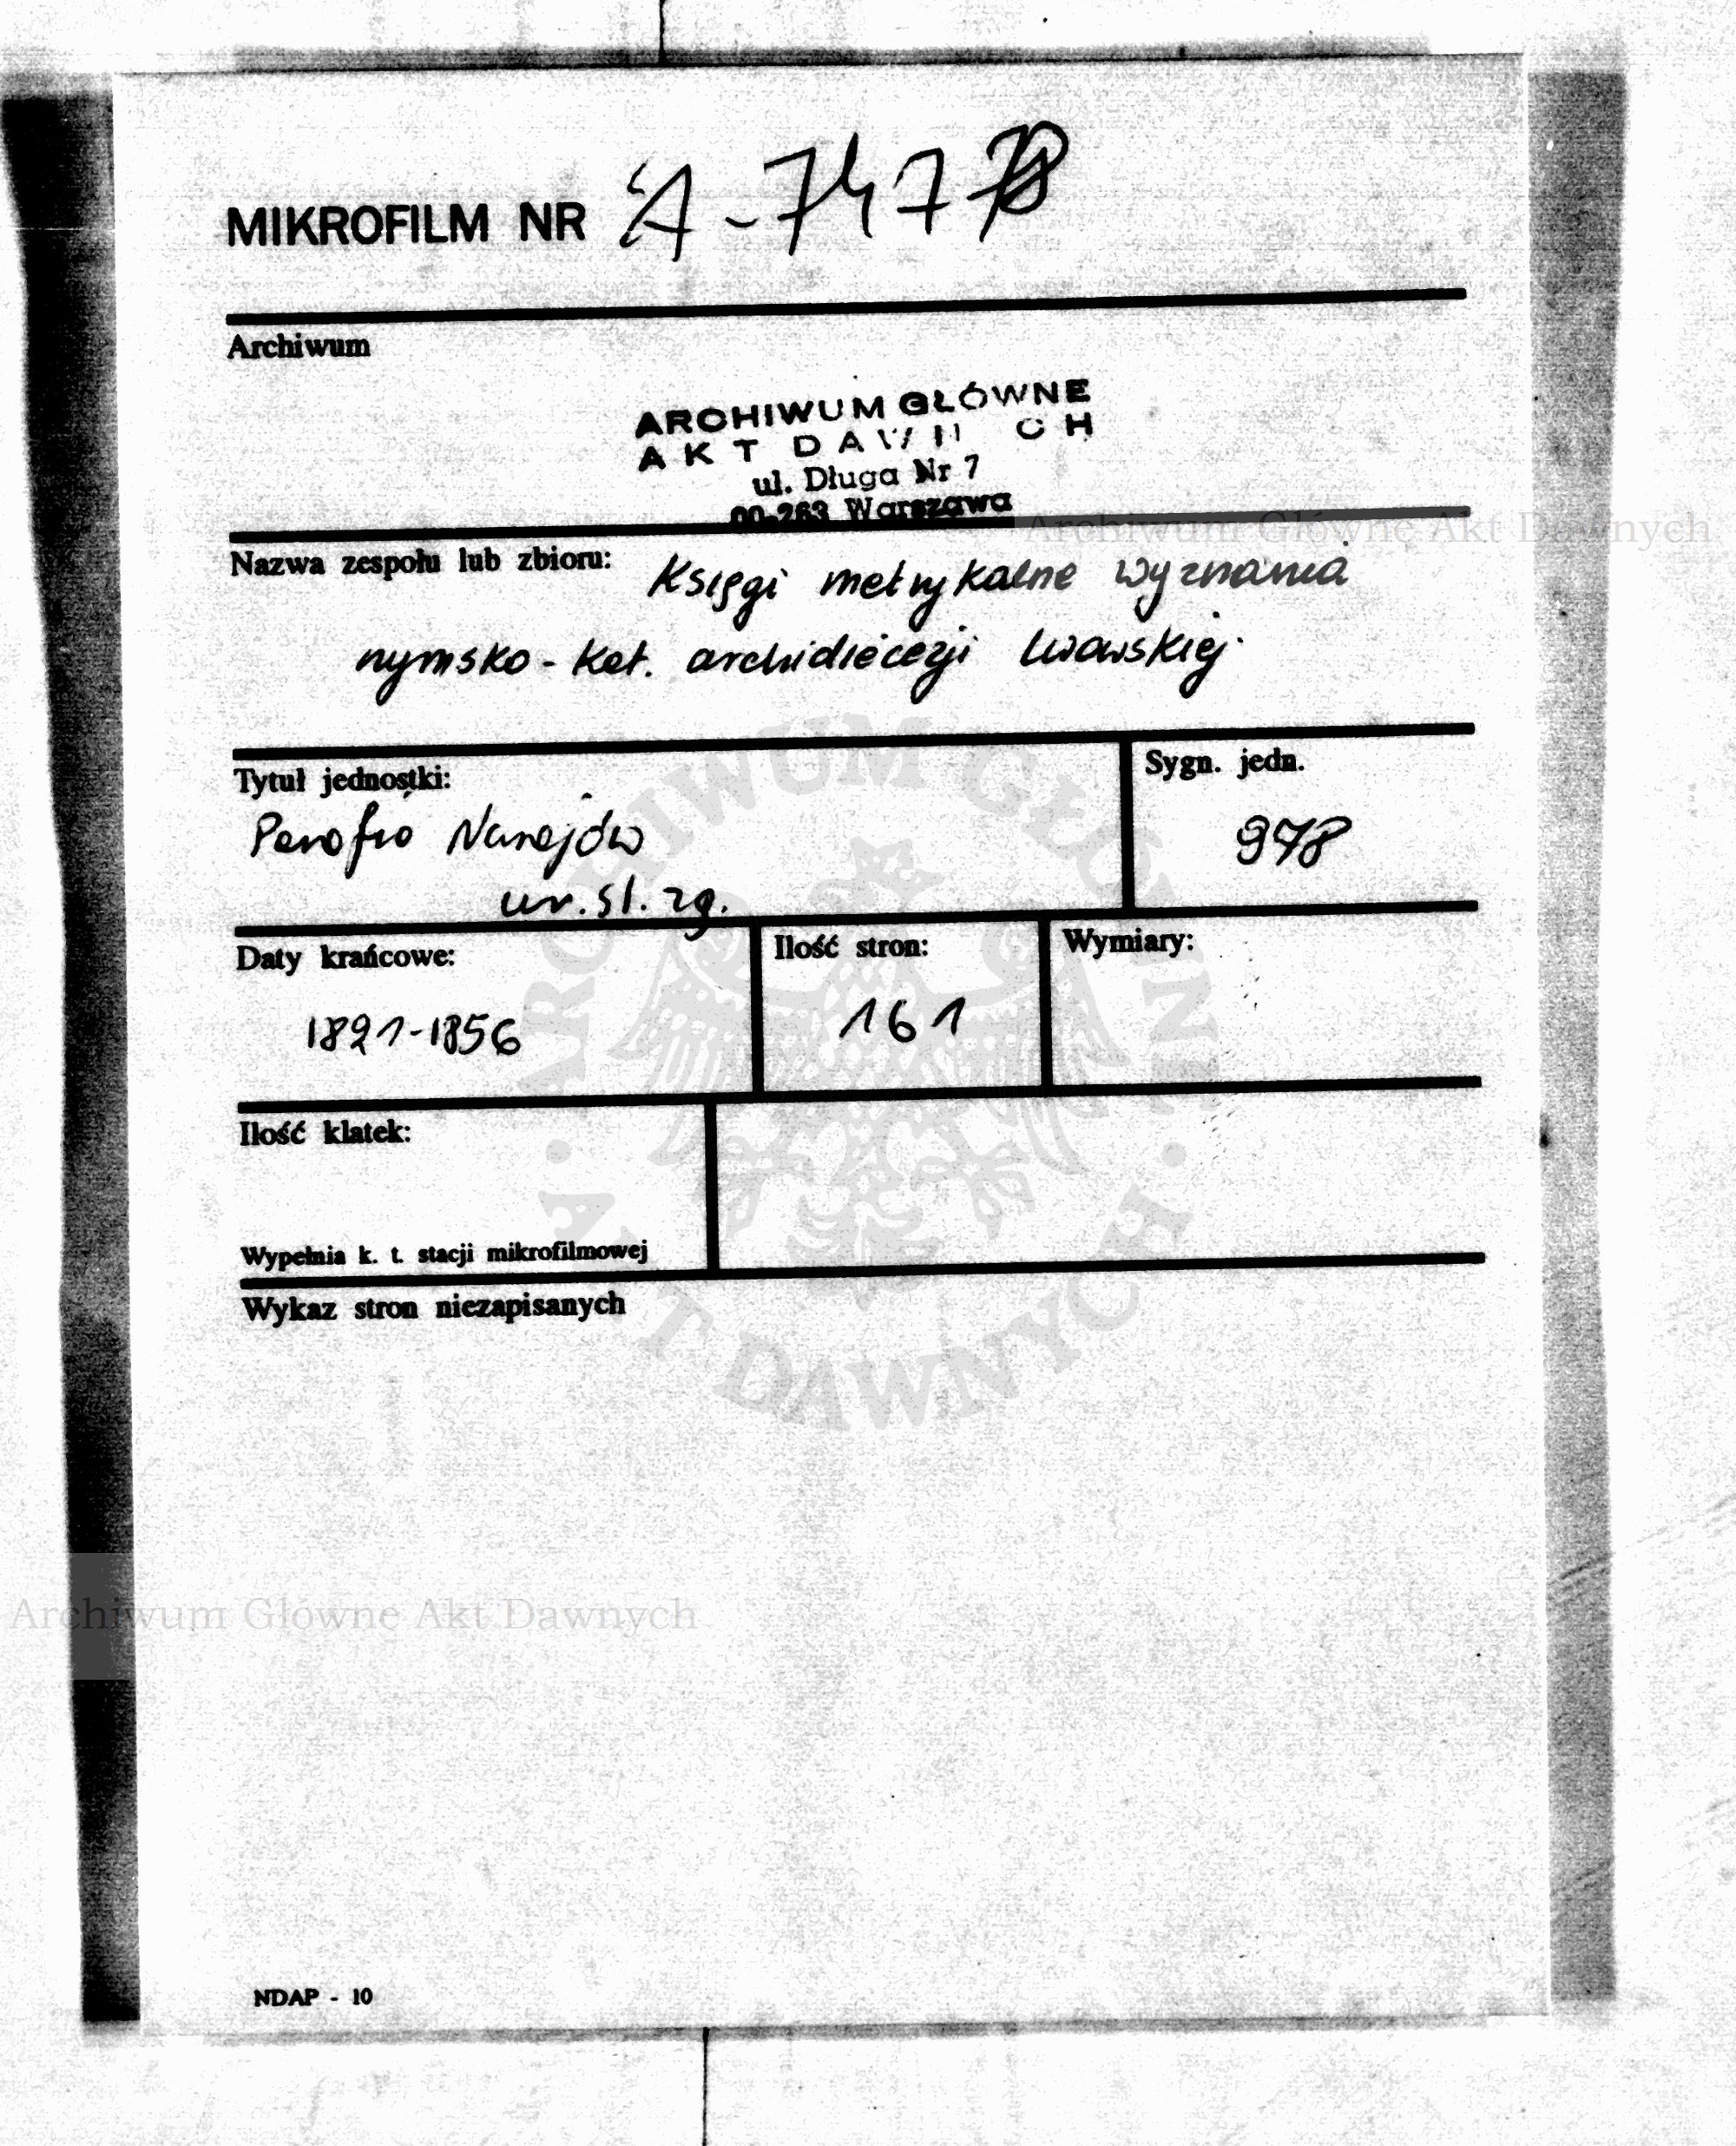 MIKROFILM NR A-7478
Archiwum
ARCHIWUM GŁÓWNE
AKT DAWNYCH
ul. Długa Nr 7
00-263 Warszawa
Archiwum Główne Akt Dawnych
Nazwa zespołu lub zbioru: Księgi metrykalne wyznania
rzymsko-kat. archidiecezji Lwowskiej
Tytuł jednostki:
Sygn. jedn.
Parafia Narajów
978
ur. śl. zg.
Daty krańcowe:
Ilość stron:
Wymiary:
1821-1856
161
Ilość klatek:
Wypełnia k. t. stacji mikrofilmowej
Wykaz stron niezapisanych
ARCHIWUM GŁÓWNE
AKT DAWNYCH
Archiwum Główne Akt Dawnych
NDAP - 10